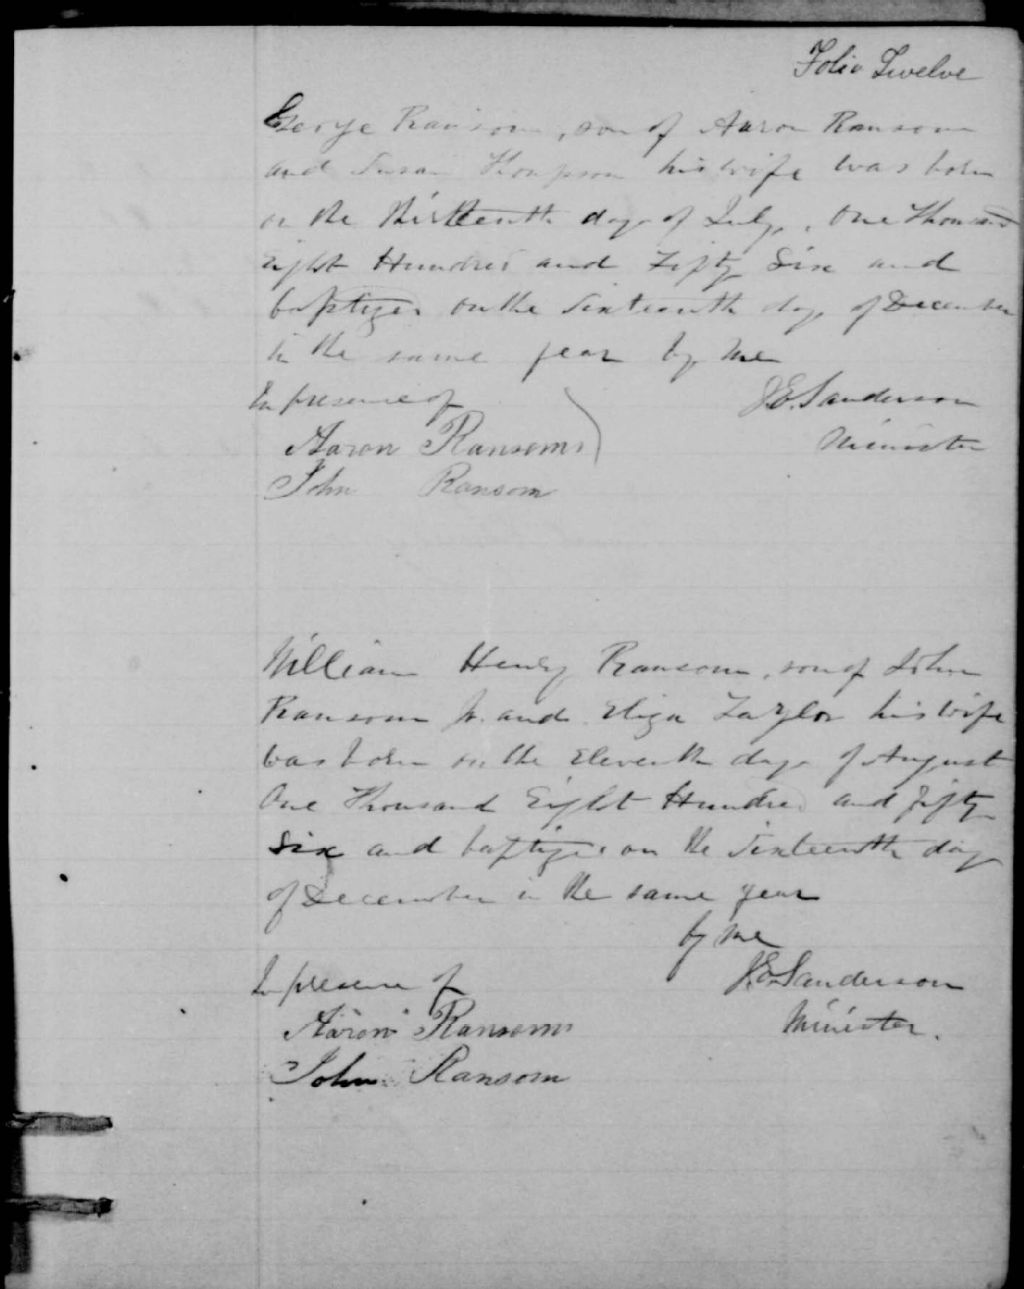 Folio Twelve
George Ransom, son of Aaron Ransom
and Susan Thompson his wife was born
on the thirteenth day of July, One Thousand
Eight Hundred and Fifty Six and
baptized on the Sixteenth day of December
in the same year by me
In presence of J.E. Sanderson
Aaron Ransom Minister
John Ransom
William Henry Ransom, son of John
Ransom Jr. and Eliza Taylor his wife
was born on the Eleventh day of August
One Thousand Eight Hundred and fifty
Six and baptized on the Sixteenth day
of December in the same year
by me
In presence of J.E. Sanderson
Aaron Ransom Minister.
John Ransom